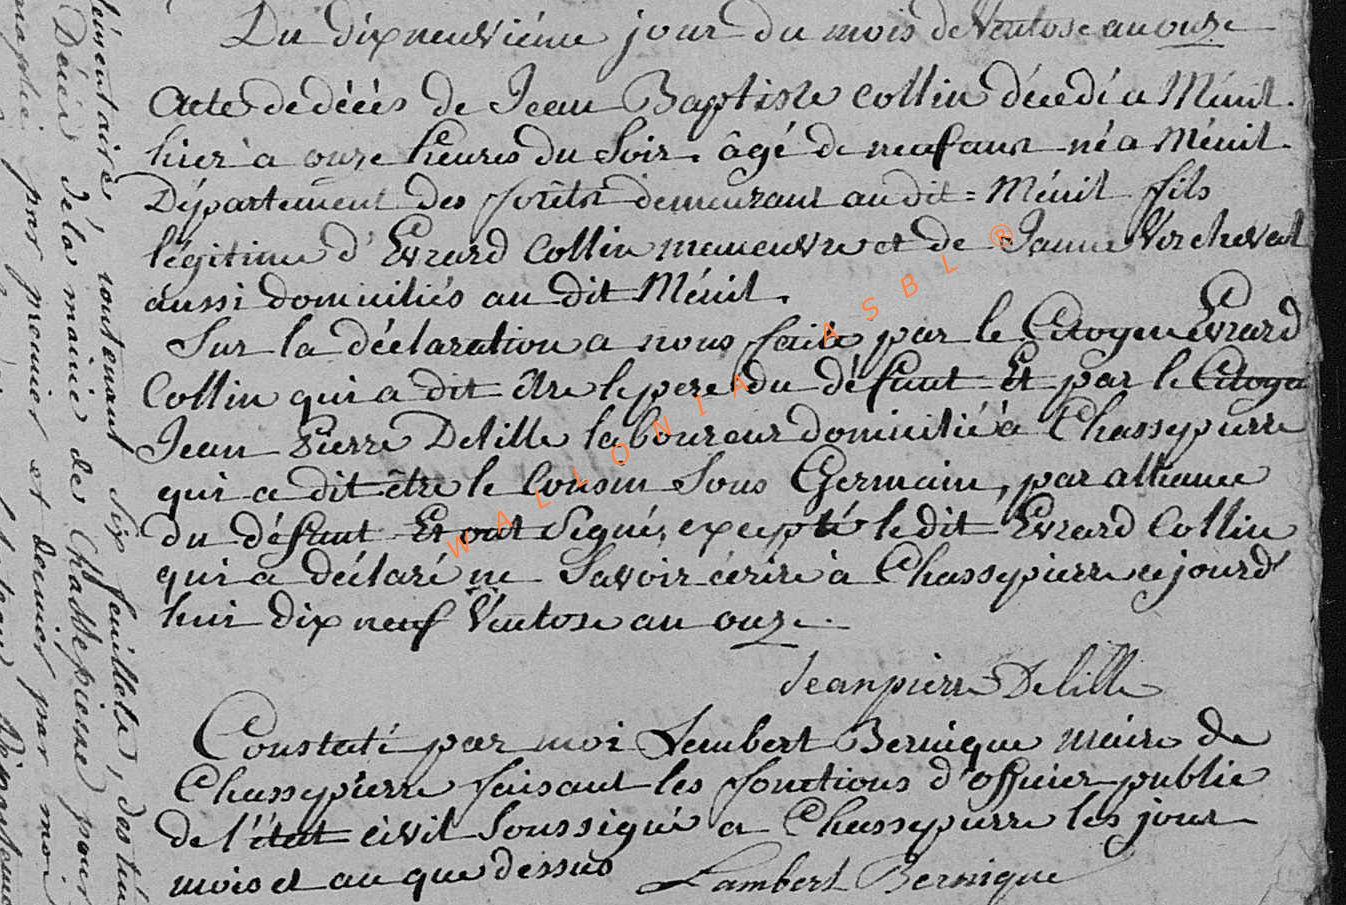 Du dixneuviéme jour du mois de Ventose an onze
Acte de décés de Jean Baptiste Collin décedé a Ménil
hier a onze heures du Soir. âgé de neuf ans né a Ménil.
Département des forêts demeurant au dit = Ménil fils
légitime d'Evrard Collin maneuvre et de Jeanne Vercheval
aussi domiciliés au dit Ménil.
Sur la déclaration a nous faite par le Citoyen Evrard
Collin qui a dit être le pere du défunt Et par le Citoyen
Jean Pierre Delille laboureur domicilié à Chassepierre
qui a dit être le Cousin Sous Germain, par alliance
du défunt Et ont Signé, excepté le dit Evrard Collin
qui a déclaré ne Savoir écrire à Chassepierre ce jourd'
hui dix neuf Ventose an onze.
Jeanpierre Delille
Constaté par moi Lambert Bernique maire de
Chassepierre faisant les fonctions d'officier public
de l'état civil Soussigné a Chassepierre les jour
mois et an que dessus
Lambert Bernique
contenant Six feuillets, destiné
Décés de la mairie de Chassepierre pour
par premier et dernier par moi
WALLONIA ASBL ®